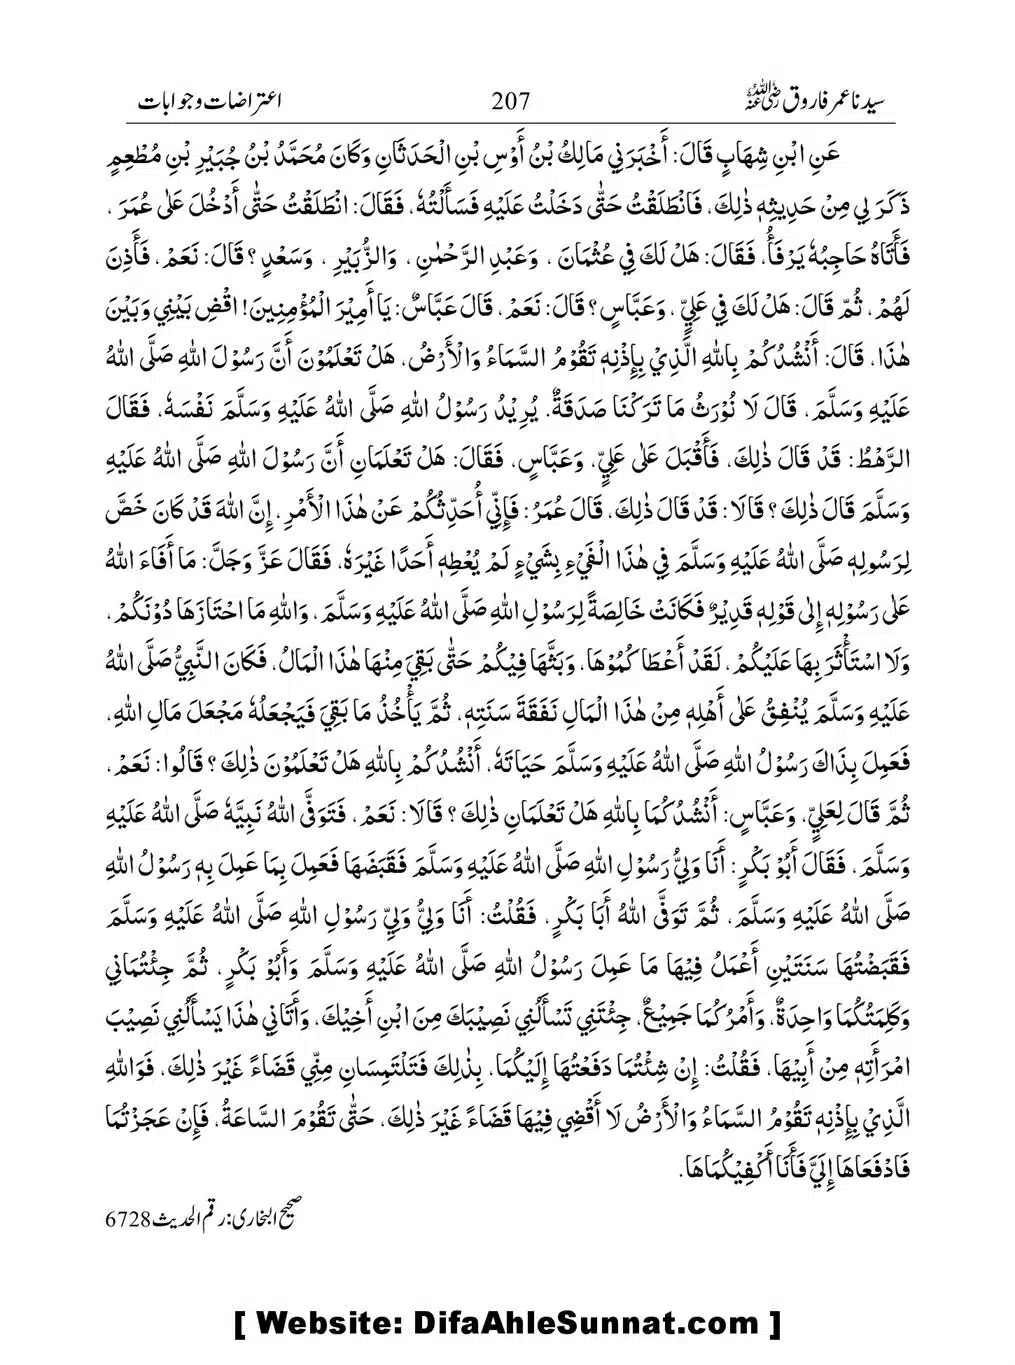 سیدنا عمر فاروق رضی اللہ عنہ 207 اعتراضات و جوابات
عَنِ ابْنِ شِهَابٍ قَالَ: أَخْبَرَنِي مَالِكُ بْنُ أَوْسِ بْنِ الْحَدَثَانِ وَكَانَ مُحَمَّدُ بْنُ جُبَيْرِ بْنِ مُطْعِمٍ
ذَكَرَ لِي مِنْ حَدِيثِهٖ ذٰلِكَ، فَانْطَلَقْتُ حَتّٰى دَخَلْتُ عَلَيْهِ فَسَأَلْتُهٗ، فَقَالَ: انْطَلَقْتُ حَتّٰى أَدْخُلَ عَلٰى عُمَرَ ،
فَأَتَاهُ حَاجِبُهٗ يَرْفَأُ، فَقَالَ: هَلْ لَكَ فِي عُثْمَانَ ، وَعَبْدِ الرَّحْمٰنِ ، وَالزُّبَيْرِ ، وَسَعْدٍ ؟ قَالَ: نَعَمْ، فَأَذِنَ
لَهُمْ، ثُمّ قَالَ: هَلْ لَكَ فِي عَلِيٍّ ، وَعَبَّاسٍ ؟ قَالَ: نَعَمْ، قَالَ عَبَّاسٌ: يَا أَمِيْرَ الْمُؤْمِنِينَ! اقْضِ بَيْنِي وَبَيْنَ
هٰذَا، قَالَ: أَنْشُدُكُمْ بِاللهِ الَّذِيْ بِإِذْنِهٖ تَقُوْمُ السَّمَاءُ وَالْأَرْضُ، هَلْ تَعْلَمُوْنَ أَنَّ رَسُوْلَ اللهِ صَلَّى اللهُ
عَلَيْهِ وَسَلَّمَ، قَالَ لَا نُوْرَثُ مَا تَرَكْنَا صَدَقَةٌ، يُرِيْدُ رَسُوْلُ اللهِ صَلَّى اللهُ عَلَيْهِ وَسَلَّمَ نَفْسَهٗ، فَقَالَ
الرَّهْطُ: قَدْ قَالَ ذٰلِكَ، فَأَقْبَلَ عَلٰى عَلِيٍّ، وَعَبَّاسٍ، فَقَالَ: هَلْ تَعْلَمَانِ أَنَّ رَسُوْلَ اللهِ صَلَّى اللهُ عَلَيْهِ
وَسَلَّمَ قَالَ ذٰلِكَ ؟ قَالَا: قَدْ قَالَ ذٰلِكَ، قَالَ عُمَرُ: فَإِنِّي أُحَدِّثُكُمْ عَنْ هٰذَا الْأَمْرِ، إِنَّ اللهَ قَدْ كَانَ خَصَّ
لِرَسُولِهٖ صَلَّى اللهُ عَلَيْهِ وَسَلَّمَ فِي هٰذَا الْفَيْءِ بِشَيْءٍ لَمْ يُعْطِهٖ أَحَدًا غَيْرَهٗ، فَقَالَ عَزَّ وَجَلَّ: مَا أَفَاءَ اللهُ
عَلٰى رَسُوْلِهٖ إِلٰى قَوْلِهٖ قَدِيْرٌ فَكَانَتْ خَالِصَةً لِرَسُوْلِ اللهِ صَلَّى اللهُ عَلَيْهِ وَسَلَّمَ، وَاللهِ مَا احْتَازَهَا دُوْنَكُمْ،
وَلَا اسْتَأْثَرَ بِهَا عَلَيْكُمْ، لَقَدْ أَعْطَاكُمُوْهَا، وَبَثَّهَا فِيْكُمْ حَتّٰى بَقِيَ مِنْهَا هٰذَا الْمَالُ، فَكَانَ النَّبِيُّ صَلَّى اللهُ
عَلَيْهِ وَسَلَّمَ يُنْفِقُ عَلٰى أَهْلِهٖ مِنْ هٰذَا الْمَالِ نَفَقَةَ سَنَتِهٖ، ثُمَّ يَأْخُذُ مَا بَقِيَ فَيَجْعَلُهٗ مَجْعَلَ مَالِ اللهِ،
فَعَمِلَ بِذَاكَ رَسُوْلُ اللهِ صَلَّى اللهُ عَلَيْهِ وَسَلَّمَ حَيَاتَهٗ، أَنْشُدُكُمْ بِاللهِ هَلْ تَعْلَمُوْنَ ذٰلِكَ ؟ قَالُوا: نَعَمْ،
ثُمَّ قَالَ لِعَلِيٍّ، وَعَبَّاسٍ: أَنْشُدُكُمَا بِاللهِ هَلْ تَعْلَمَانِ ذٰلِكَ ؟ قَالَا: نَعَمْ، فَتَوَفَّى اللهُ نَبِيَّهٗ صَلَّى اللهُ عَلَيْهِ
وَسَلَّمَ، فَقَالَ أَبُوْ بَكْرٍ: أَنَا وَلِيُّ رَسُوْلِ اللهِ صَلَّى اللهُ عَلَيْهِ وَسَلَّمَ فَقَبَضَهَا فَعَمِلَ بِمَا عَمِلَ بِهٖ رَسُوْلُ اللهِ
صَلَّى اللهُ عَلَيْهِ وَسَلَّمَ، ثُمَّ تَوَفَّى اللهُ أَبَا بَكْرٍ، فَقُلْتُ: أَنَا وَلِيُّ وَلِيِّ رَسُوْلِ اللهِ صَلَّى اللهُ عَلَيْهِ وَسَلَّمَ
فَقَبَضْتُهَا سَنَتَيْنِ أَعْمَلُ فِيْهَا مَا عَمِلَ رَسُوْلُ اللهِ صَلَّى اللهُ عَلَيْهِ وَسَلَّمَ وَأَبُوْ بَكْرٍ، ثُمَّ جِئْتُمَانِي
وَكَلِمَتُكُمَا وَاحِدَةٌ، وَأَمْرُكُمَا جَمِيْعٌ، جِئْتَنِي تَسْأَلُنِي نَصِيْبَكَ مِنَ ابْنِ أَخِيْكَ، وَأَتَانِي هٰذَا يَسْأَلُنِي نَصِيْبَ
امْرَأَتِهٖ مِنْ أَبِيْهَا، فَقُلْتُ: إِنْ شِئْتُمَا دَفَعْتُهَا إِلَيْكُمَا، بِذٰلِكَ فَتَلْتَمِسَانِ مِنِّي قَضَاءً غَيْرَ ذٰلِكَ، فَوَاللهِ
الَّذِيْ بِإِذْنِهٖ تَقُوْمُ السَّمَاءُ وَالْأَرْضُ لَا أَقْضِي فِيْهَا قَضَاءً غَيْرَ ذٰلِكَ، حَتّٰى تَقُوْمَ السَّاعَةُ، فَإِنْ عَجَزْتُمَا
فَادْفَعَاهَا إِلَيَّ فَأَنَا أَكْفِيْكُمَاهَا.
صحیح البخاری: رقم الحدیث 6728
[ Website: DifaAhleSunnat.com ]